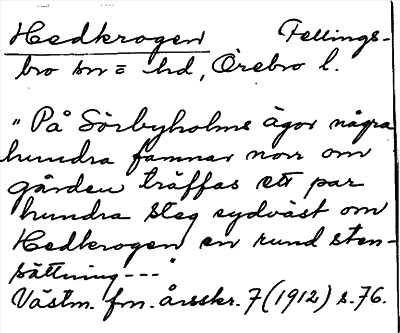 Hedkrogen Fellings-
bro sn = hd, Örebro l.
"På Sörbyholms ägor några
hundra famnar norr om
gården träffas ett par
hundra steg sydväst om
Hedkrogen en rund sten-
sättning---"
Västm. fm. årsskr. 7 (1912) s. 76.